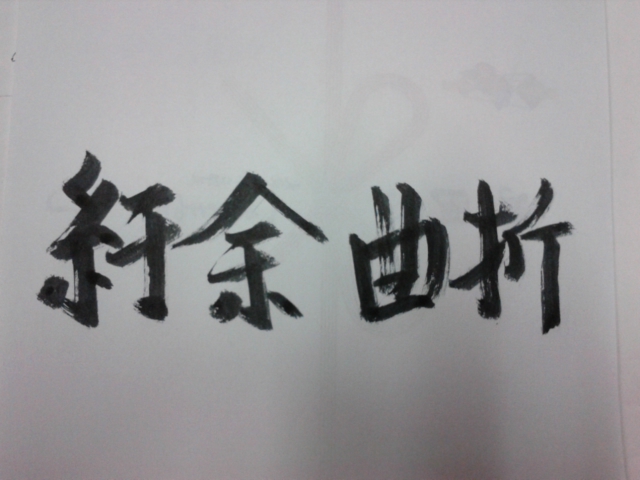 紆余曲折